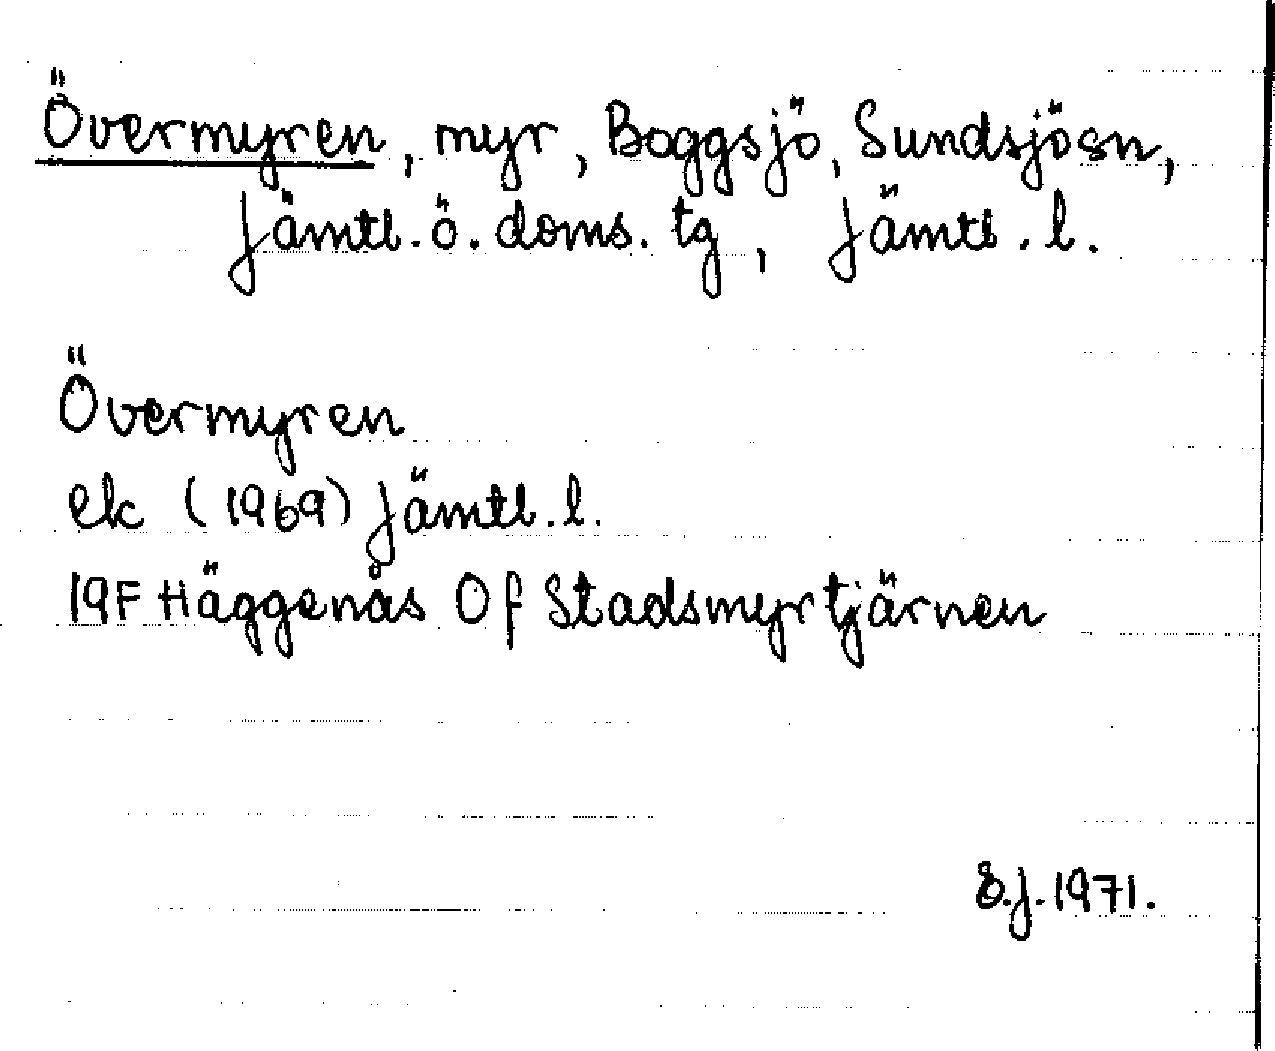 Övermyren, myr, Boggsjö, Sundsjösn,
Jämtl.ö.doms.tg, Jämtl.l.
Övermyren
ek (1969) Jämtl.l.
19F Häggenås 0f Stadsmyrtjärnen
S.J.1971.